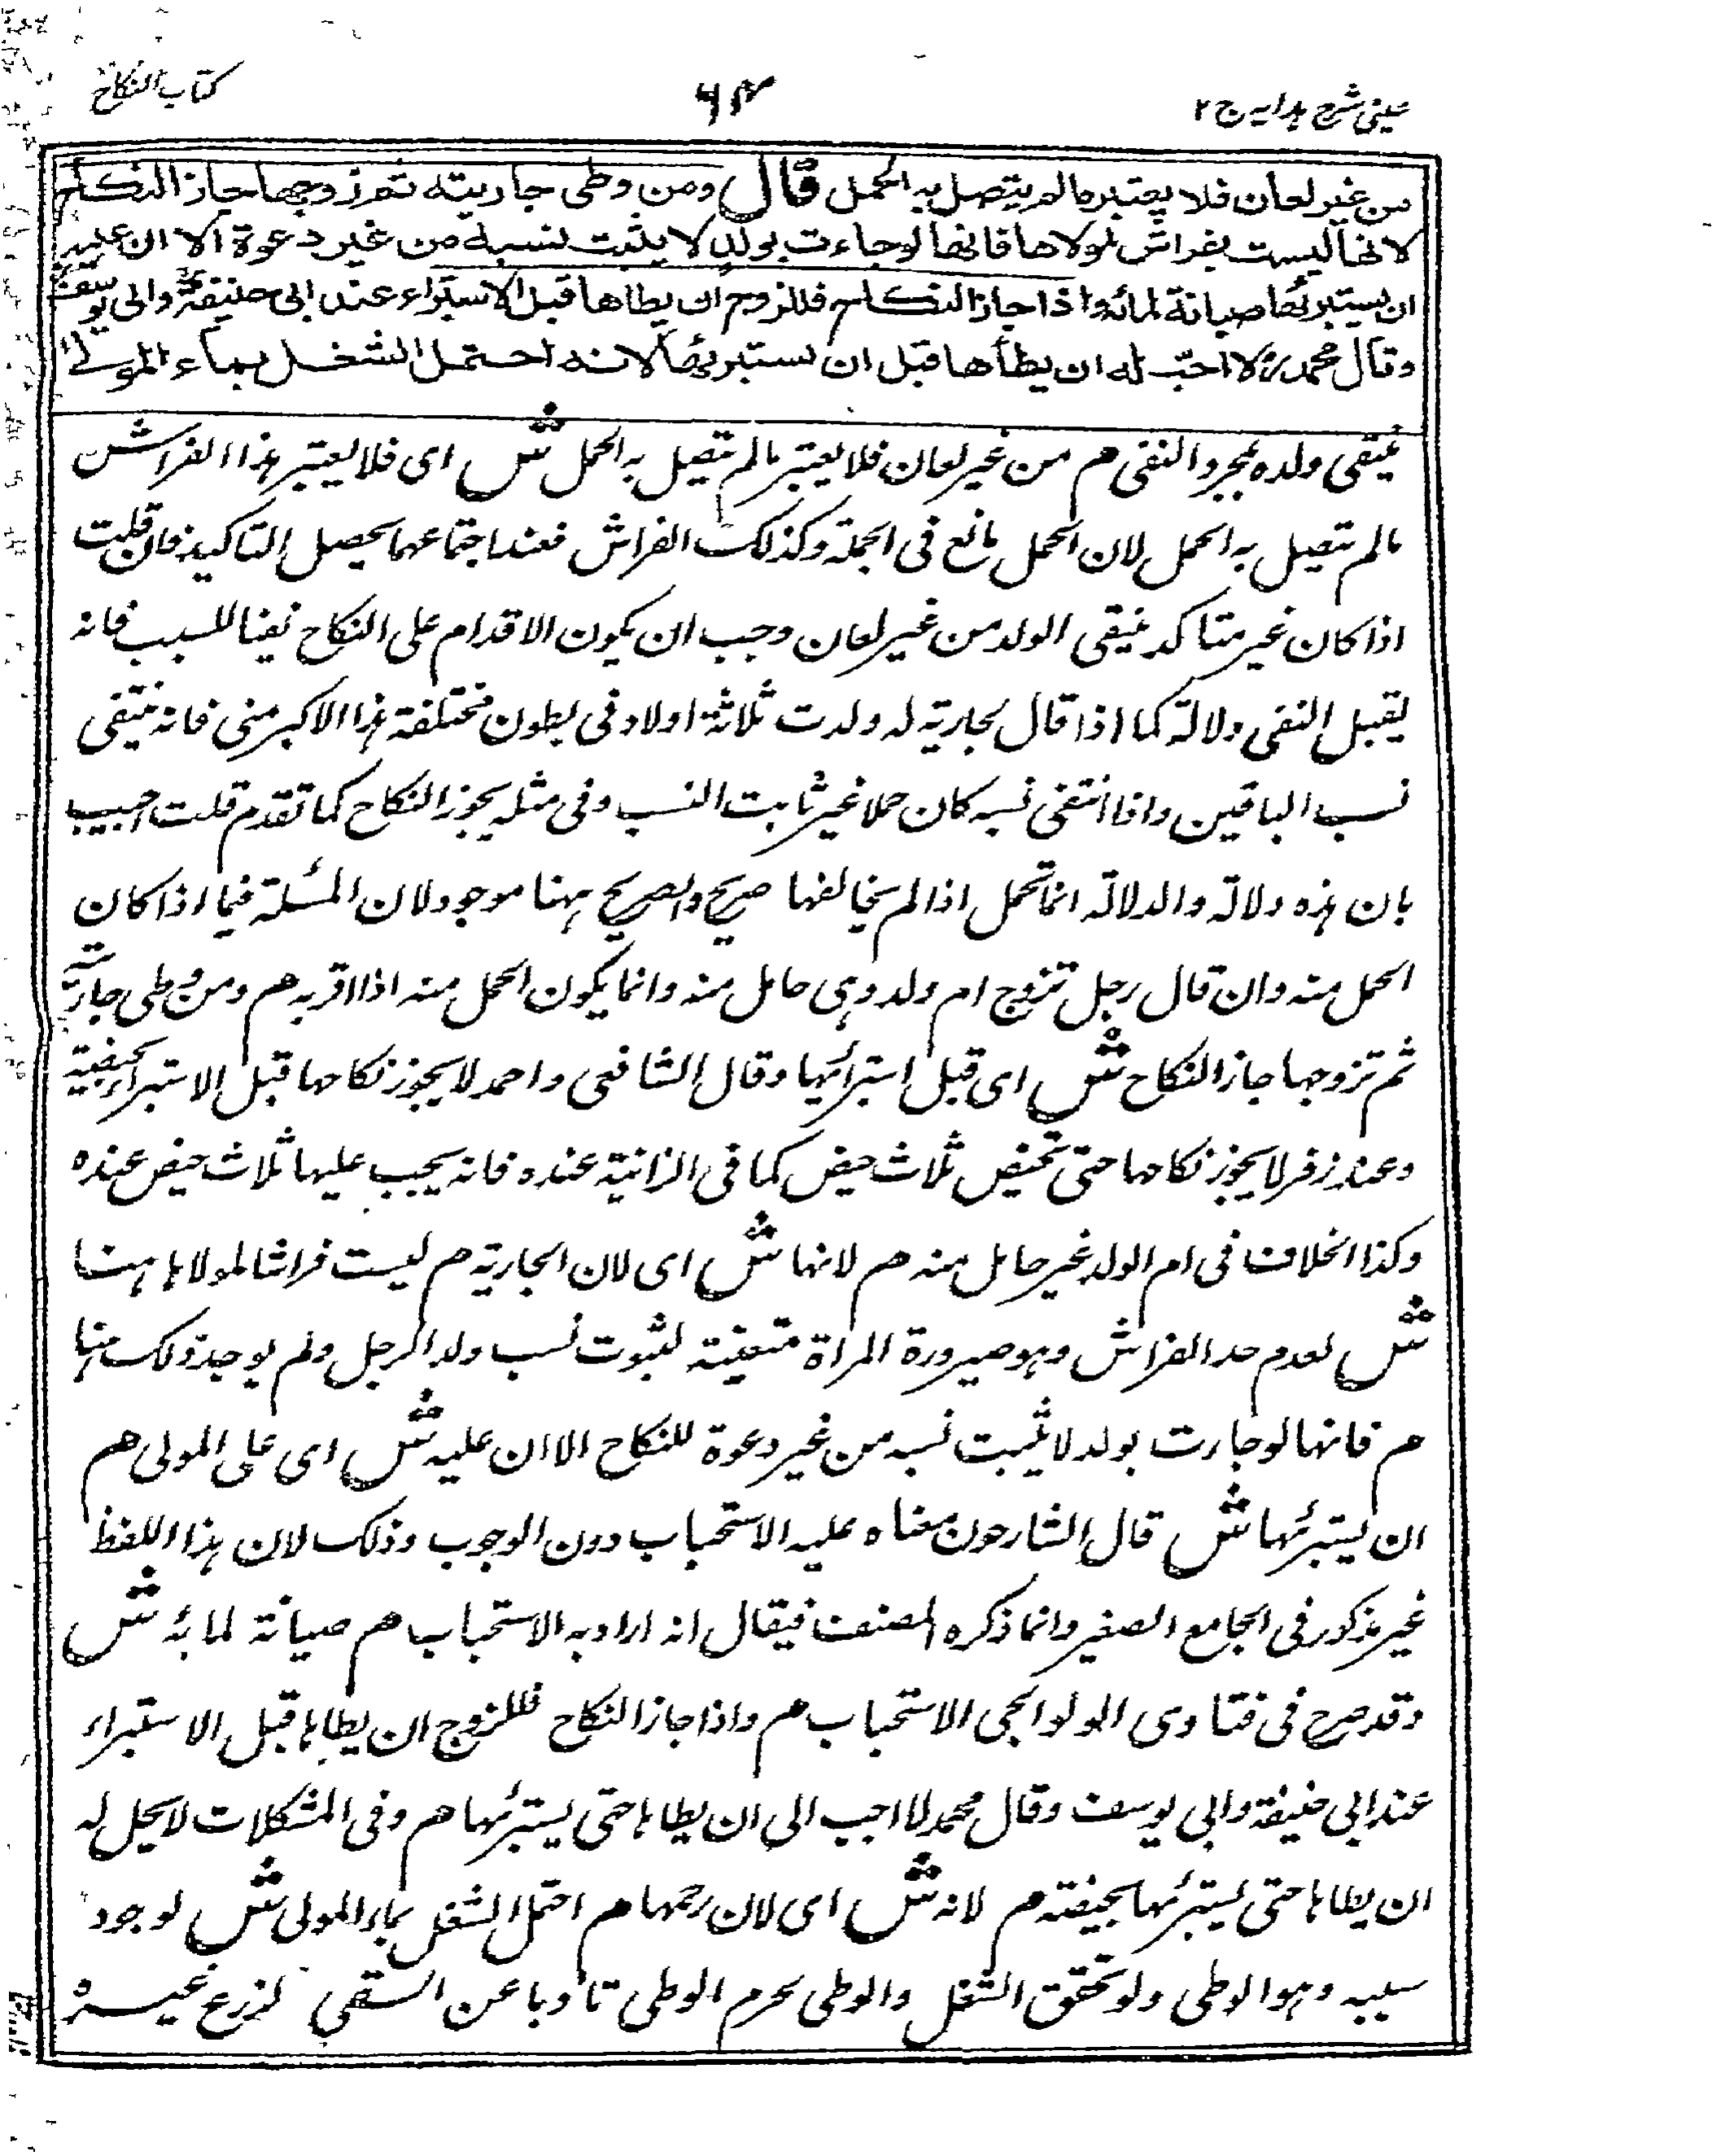 عینی شرح ہدایہ ج ۲
۶۴
کتاب النکاح
من غير لعان فلا يعتبر ما لم يتصل به الحمل قال ومن وطى جاريته ثم زوجها جاز النكاح
لانها ليست بفراش لمولاها فانها لو جاءت بولد لا يثبت نسبه من غير دعوة الا ان عليه
ان يستبرئها صيانة لمائه واذا جاز النكاح فللزوج ان يطاها قبل الاستبراء عند ابى حنيفة وابى يوسف
وقال محمد لا احب له ان يطأها قبل ان يستبرئها لانه احتمل الشغل بماء المولى
ينتفى ولده بمجرد النفى م من غير لعان فلا يعتبر ما لم يتصل به الحمل ش اى فلا يعتبر هذا الفراش
ما لم يتصل به الحمل لان الحمل مانع فى الجملة وكذلك الفراش فعند اجتماعهما يحصل التاكيد فان قلت
اذا كان غير متاكد ينتفى الولد من غير لعان وجب ان يكون الاقدام على النكاح نفيا للنسب فانه
يقبل النفى دلالة كما اذا قال لجارية له ولدت ثلاثة اولاد فى بطون مختلفة هذا الاكبر منى فانه ينتفى
نسب الباقين واذا انتفى نسبه كان حملا غير ثابت النسب وفى مثله يجوز النكاح كما تقدم قلت اجيب
بان هذه دلالة والدلالة انما تحمل اذا لم يخالفها صريح والصريح ههنا موجود لان المسئلة فيما اذا كان
الحمل منه وان قال رجل تزوج ام ولد وهى حامل منه وانما يكون الحمل منه اذا اقر به م ومن وطى جاريته
ثم تزوجها جاز النكاح ش اى قبل استبرائها وقال الشافعى واحمد لا يجوز نكاحها قبل الاستبراء بحيضة
وعند زفر لا يجوز نكاحها حتى تحيض ثلاث حيض كما فى الزانية عنده فانه يجب عليها ثلاث حيض عنده
وكذا الخلاف فى ام الولد غير حامل منه م لانها ش اى لان الجارية م ليست فراشا لمولاها هنا
ش لعدم حد الفراش وهو صيرورة المراة متعينة لثبوت نسب ولد الرجل ولم يوجد ذلك هنا
م فانها لو جاءت بولد لا يثبت نسبه من غير دعوة للنكاح الا ان عليه ش اى على المولى م
ان يستبرئها ش قال الشارحون معناه عليه الاستحباب دون الوجوب وذلك لان هذا اللفظ
غير مذكور فى الجامع الصغير وانما ذكره المصنف فيقال انه اراد به الاستحباب م صيانة لمائه ش
وقد صرح فى فتاوى الولوالجى الاستحباب م واذا جاز النكاح فللزوج ان يطاها قبل الاستبراء
عند ابى حنيفة وابى يوسف وقال محمد لا احب الى ان يطاها حتى يستبرئها م وفى المشكلات لا يحل له
ان يطاها حتى يستبرئها بحيضة م لانه ش اى لان رحمها م احتمل الشغل بماء المولى ش لوجود
سببه وهو الوطى ولو تحقق الشغل والوطى يحرم الوطى تادبا عن السقى لزرع غيره